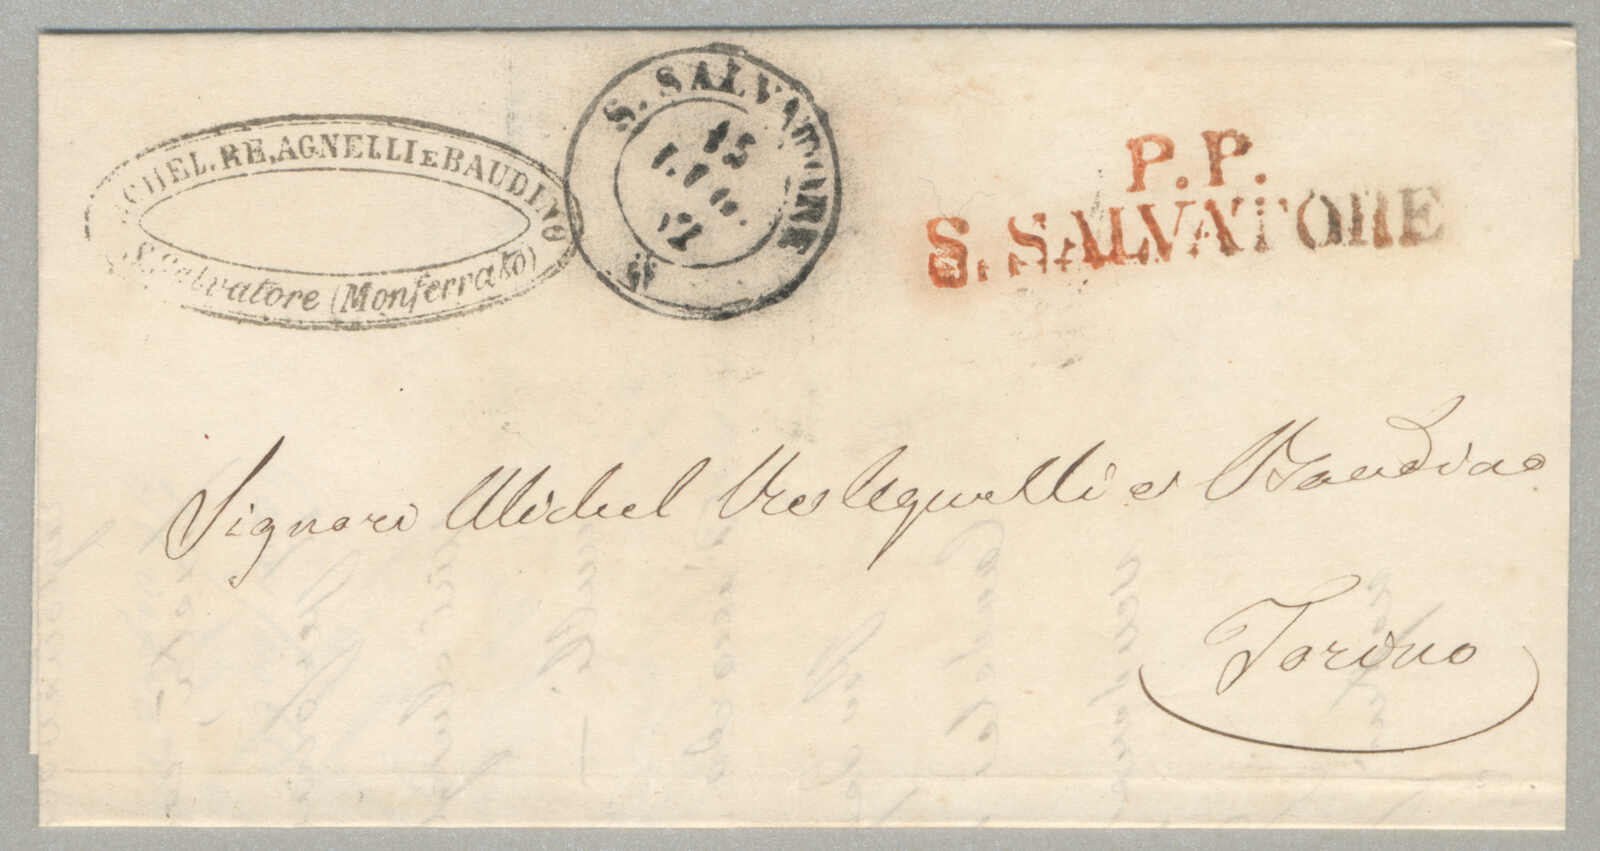 MICHEL. RE, AGNELLI E BAUDINO
S. Salvatore (Monferrato)
S. SALVATORE
15
LUG.
P. P.
S. SALVATORE
Signori Michel Re Agnelli e Baudino
Torino